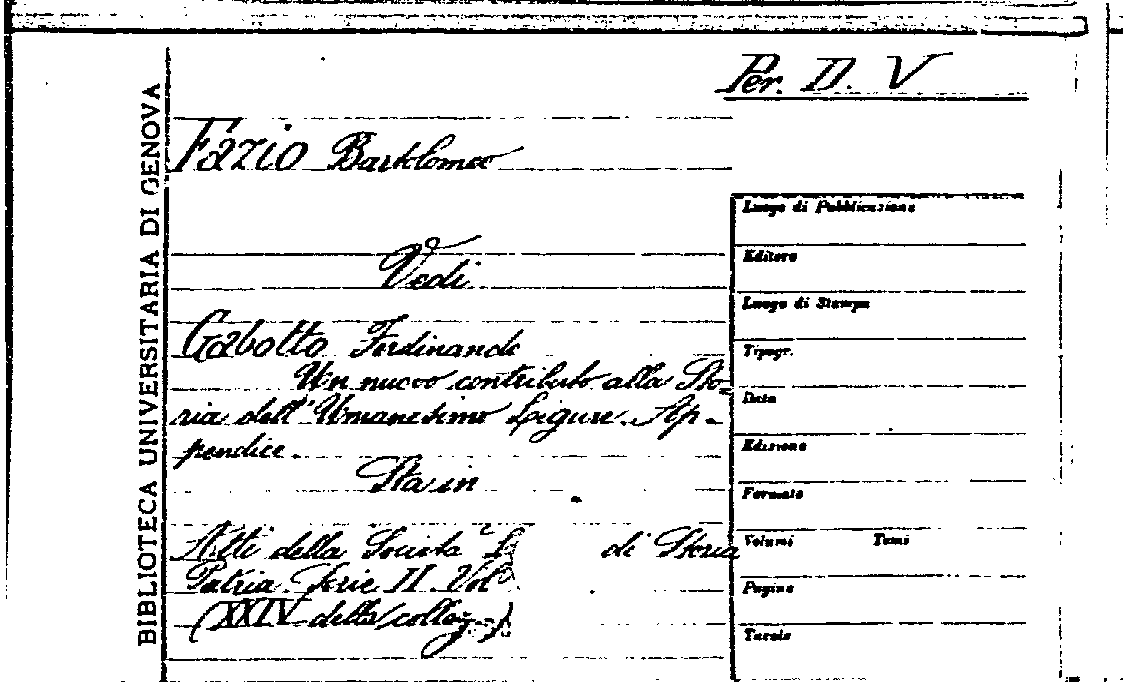 Per. D. V
BIBLIOTECA UNIVERSITARIA DI GENOVA
Fazio Bartolomeo
Vedi
Gabotto Ferdinando
Un nuovo contributo alla Sto-
ria dell'Umanesimo Ligure. Ap-
pendice.
Sta in
Atti della Società L di Storia
Patria Serie II. Vol
(XXIV della collez.)
Luogo di Pubblicazione
Editore
Luogo di Stampa
Tipogr.
Data
Edizione
Formato
Volumi Tomi
Pagine
Tavole